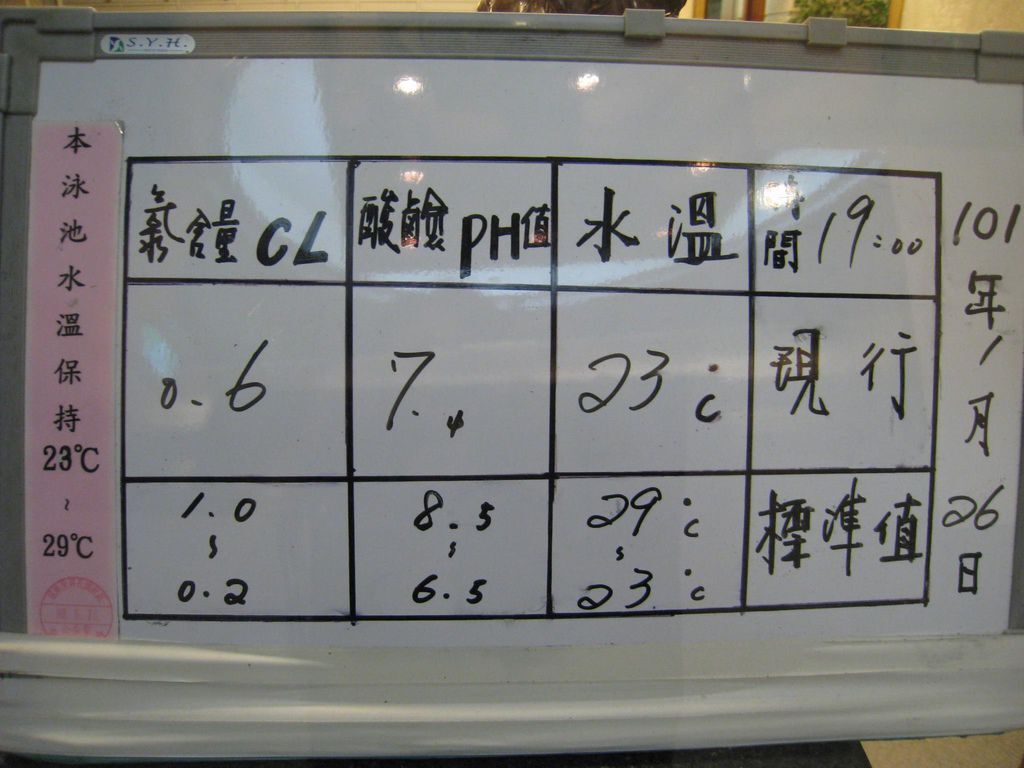 S.Y.H.
本泳池水溫保持23℃~29℃
氯含量 CL 酸鹼PH值 水溫 時間 19:00
0.6 7.4 23°C 現行
1.0 ~ 0.2 8.5 ~ 6.5 29°C ~ 23°C 標準值
101年1月26日